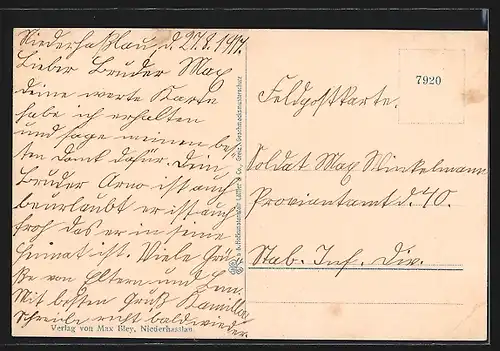 Niederhaßlau, d. 27.8.1917.
Lieber Bruder Max
deine werte Karte
habe ich erhalten
und sage meinen bes-
ten Dank dafür. Dein
Bruder Arno ist auch
beurlaubt er ist auch
froh das er in seine
Heimat ist. Viele Grü-
ße von Eltern und
Mit besten Gruß Kamilla
Schreibe recht bald wieder.
Verlag von Max Bley, Niederhasslau.
7920
Feldpostkarte.
Soldat Max Winkelmann
Proviantamt d. 40.
Stab. Inf. Div.